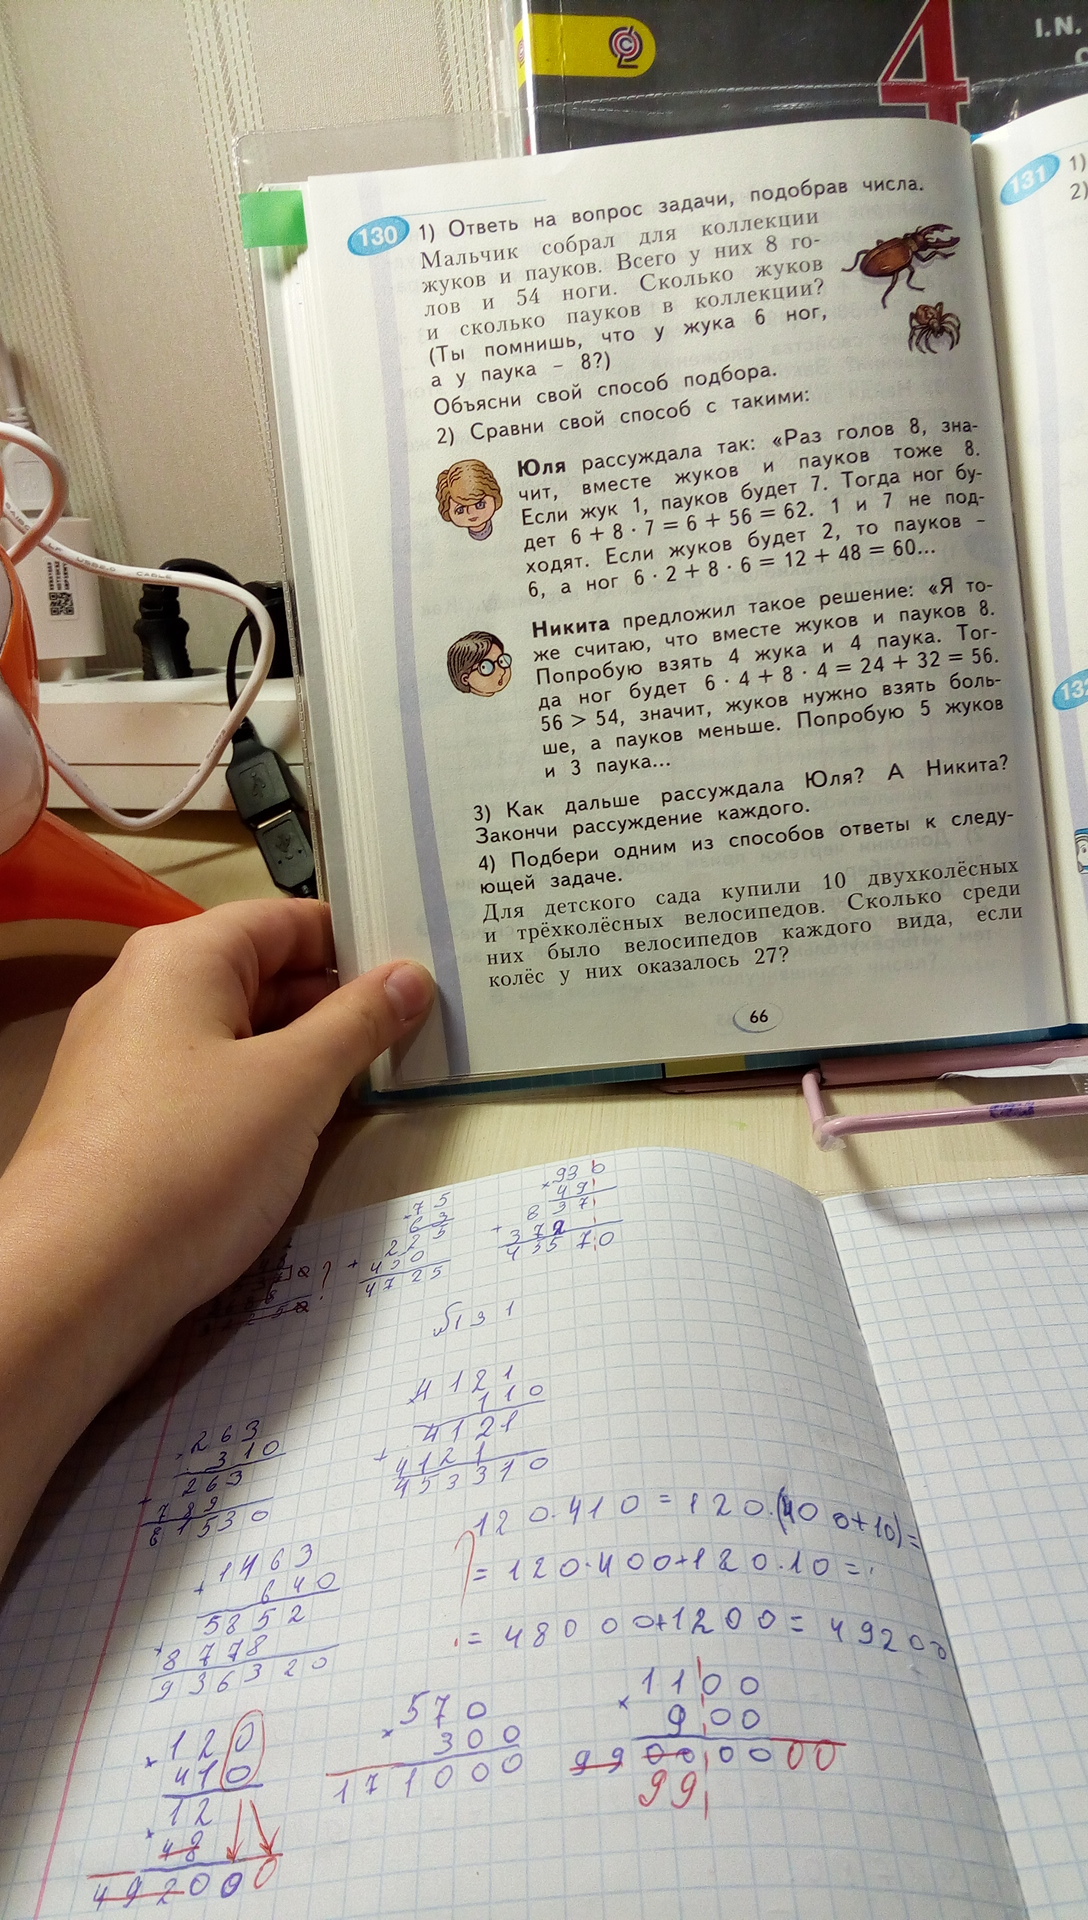 4
I.N.
130
1) Ответь на вопрос задачи, подобрав числа.
Мальчик собрал для коллекции
жуков и пауков. Всего у них 8 го-
лов и 54 ноги. Сколько жуков
и сколько пауков в коллекции?
(Ты помнишь, что у жука 6 ног,
а у паука – 8?)
Объясни свой способ подбора.
2) Сравни свой способ с такими:
Юля рассуждала так: «Раз голов 8, зна-
чит, вместе жуков и пауков тоже 8.
Если жук 1, пауков будет 7. Тогда ног бу-
дет 6 + 8 · 7 = 6 + 56 = 62. 1 и 7 не под-
ходят. Если жуков будет 2, то пауков –
6, а ног 6 · 2 + 8 · 6 = 12 + 48 = 60...
Никита предложил такое решение: «Я то-
же считаю, что вместе жуков и пауков 8.
Попробую взять 4 жука и 4 паука. Тог-
да ног будет 6 · 4 + 8 · 4 = 24 + 32 = 56.
56 > 54, значит, жуков нужно взять боль-
ше, а пауков меньше. Попробую 5 жуков
и 3 паука...
3) Как дальше рассуждала Юля? А Никита?
Закончи рассуждение каждого.
4) Подбери одним из способов ответы к следу-
ющей задаче.
Для детского сада купили 10 двухколёсных
и трёхколёсных велосипедов. Сколько среди
них было велосипедов каждого вида, если
колёс у них оказалось 27?
66
131
1)
2)
132
× 75
63
225
+ 450
4725
× 930
49
837
+ 372
45570
№131
× 4121
110
4121
+ 4121
453310
× 263
310
263
+ 789
81530
120·410 = 120·(400+10)=
= 120·400+120·10=
= 48000+1200= 49200
1463
640
5852
+ 8778
936320
× 120
410
12
48
492000
× 570
300
171000
× 1100
900
9900000000
99